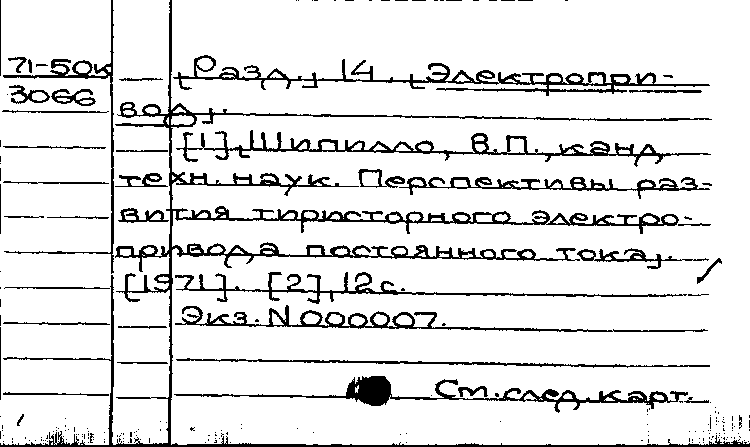 71-50к
3066
[Разд.] 14. [Электропри-
вод].
[1], [Шипилло, В.П., канд.
техн. наук. Перспективы раз-
вития тиристорного электро-
привода постоянного тока].
[1971]. [2], 12 с.
Экз. N 000007.
См. след. карт.